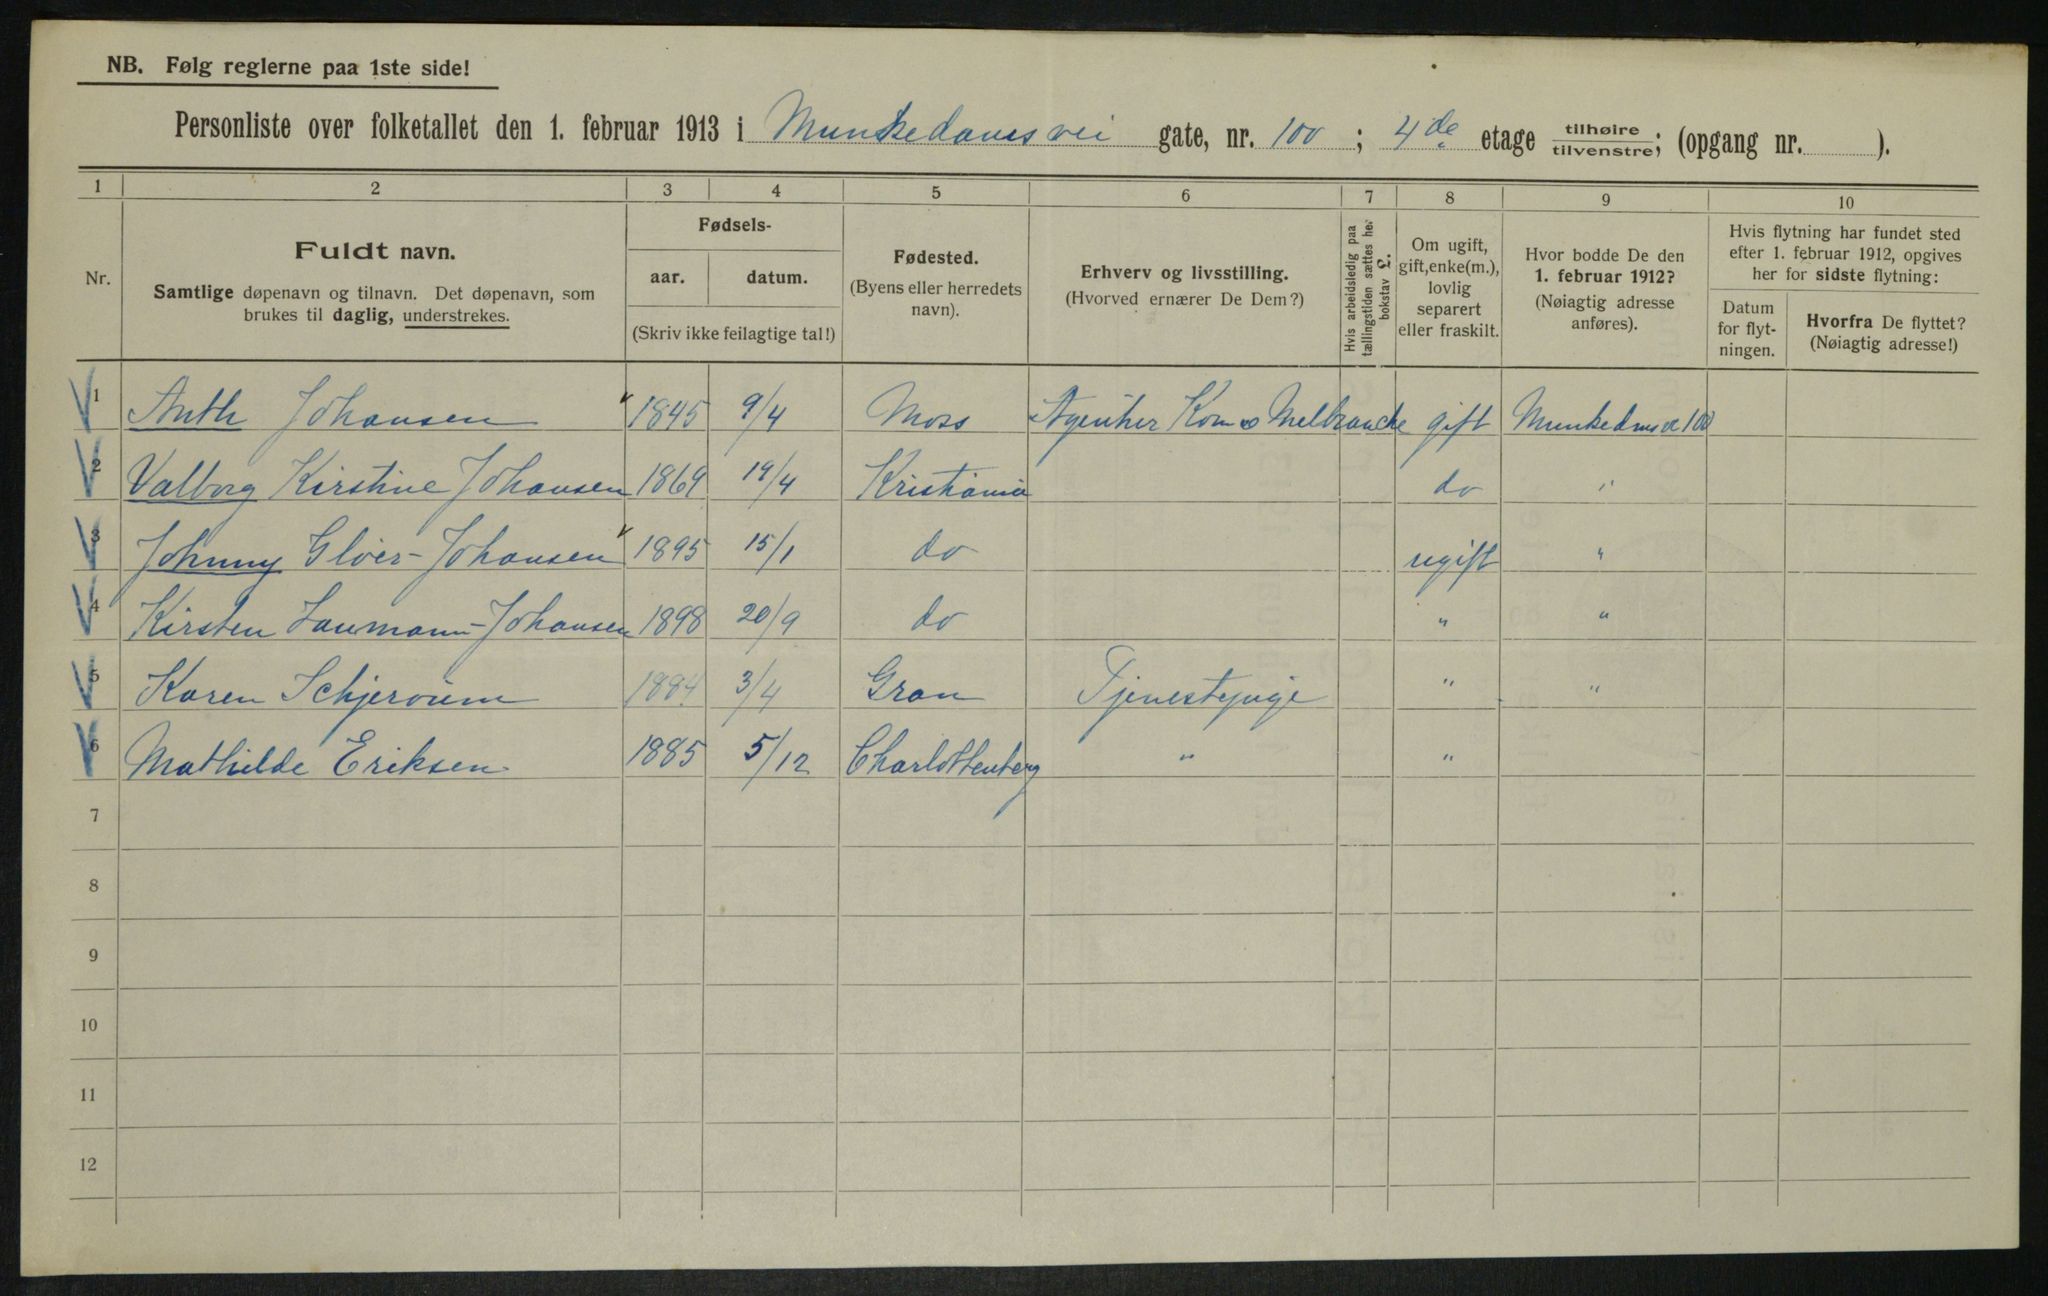 NB. Følg reglerne paa 1ste side!
Personliste over folketallet den 1. februar 1913 i Munkedamsvei gate, nr. 100 ; 4de etage tilhøire/tilvenstre; (opgang nr. ).
1 2 3 4 5 6 7 8 9 10
Nr.
Fuldt navn.
Samtlige døpenavn og tilnavn. Det døpenavn, som
brukes til daglig, understrekes.
Fødsels-
aar. datum.
(Skriv ikke feilagtige tal!)
Fødested.
(Byens eller herredets
navn).
Erhverv og livsstilling.
(Hvorved ernærer De Dem?)
Hvis arbeidsledig paa
tællingstiden sættes her
bokstav L.
Om ugift,
gift, enke(m.),
lovlig
separert
eller fraskilt.
Hvor bodde De den
1. februar 1912?
(Nøiagtig adresse
anføres).
Hvis flytning har fundet sted
efter 1. februar 1912, opgives
her for sidste flytning:
Datum
for flyt-
ningen.
Hvorfra De flyttet?
(Nøiagtig adresse!)
1 Anth Johansen 1845 9/4 Moss Agenther Korn o Melbranche gift Munkedmsv 100
2 Valborg Kirstine Johansen 1869 19/4 Kristiania do "
3 Johnny Gløer-Johansen 1895 15/1 do ugift "
4 Kirsten Laumann-Johansen 1898 20/9 do " "
5 Karen Schjerven 1884 3/4 Gran Tjenestepige " "
6 Mathilde Eriksen 1885 5/12 Charlottenberg " "
7
8
9
10
11
12